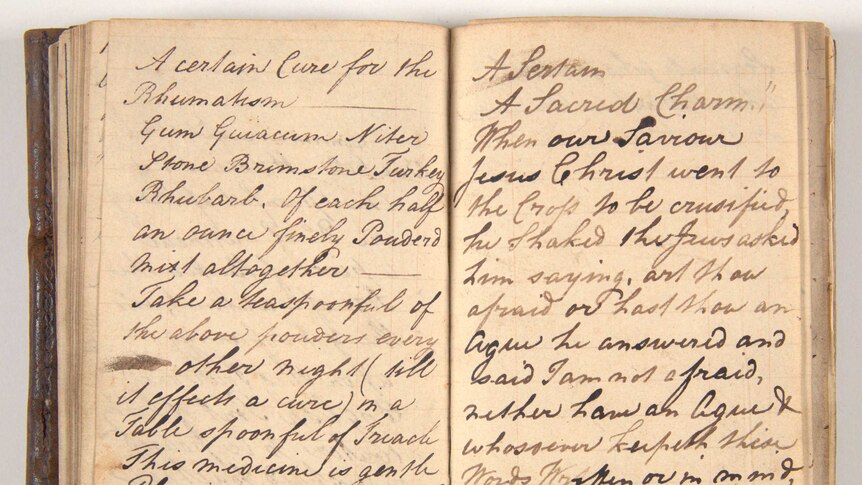 A certain Cure for the
Rhumatism
Gum Guiacum Niter
Stone Brimstone Turkey
Rhubarb. Of each half
an ounce finely Pouderd
mixt altogether
Take a teaspoonful of
the above pouders every
other night (till
it effects a cure) in a
Table spoonful of Treacle
This medicine is gentle
A Sertain
A Sacred Charm."
When our Saviour
Jesus Christ went to
the Cross to be crusified,
he Shaked the Jews asked
him saying, art thou
afraid or hast thou an
Ague he answered and
said I am not afraid,
nether have an Ague &
whosoever keepeth these
Words Written or in mind,